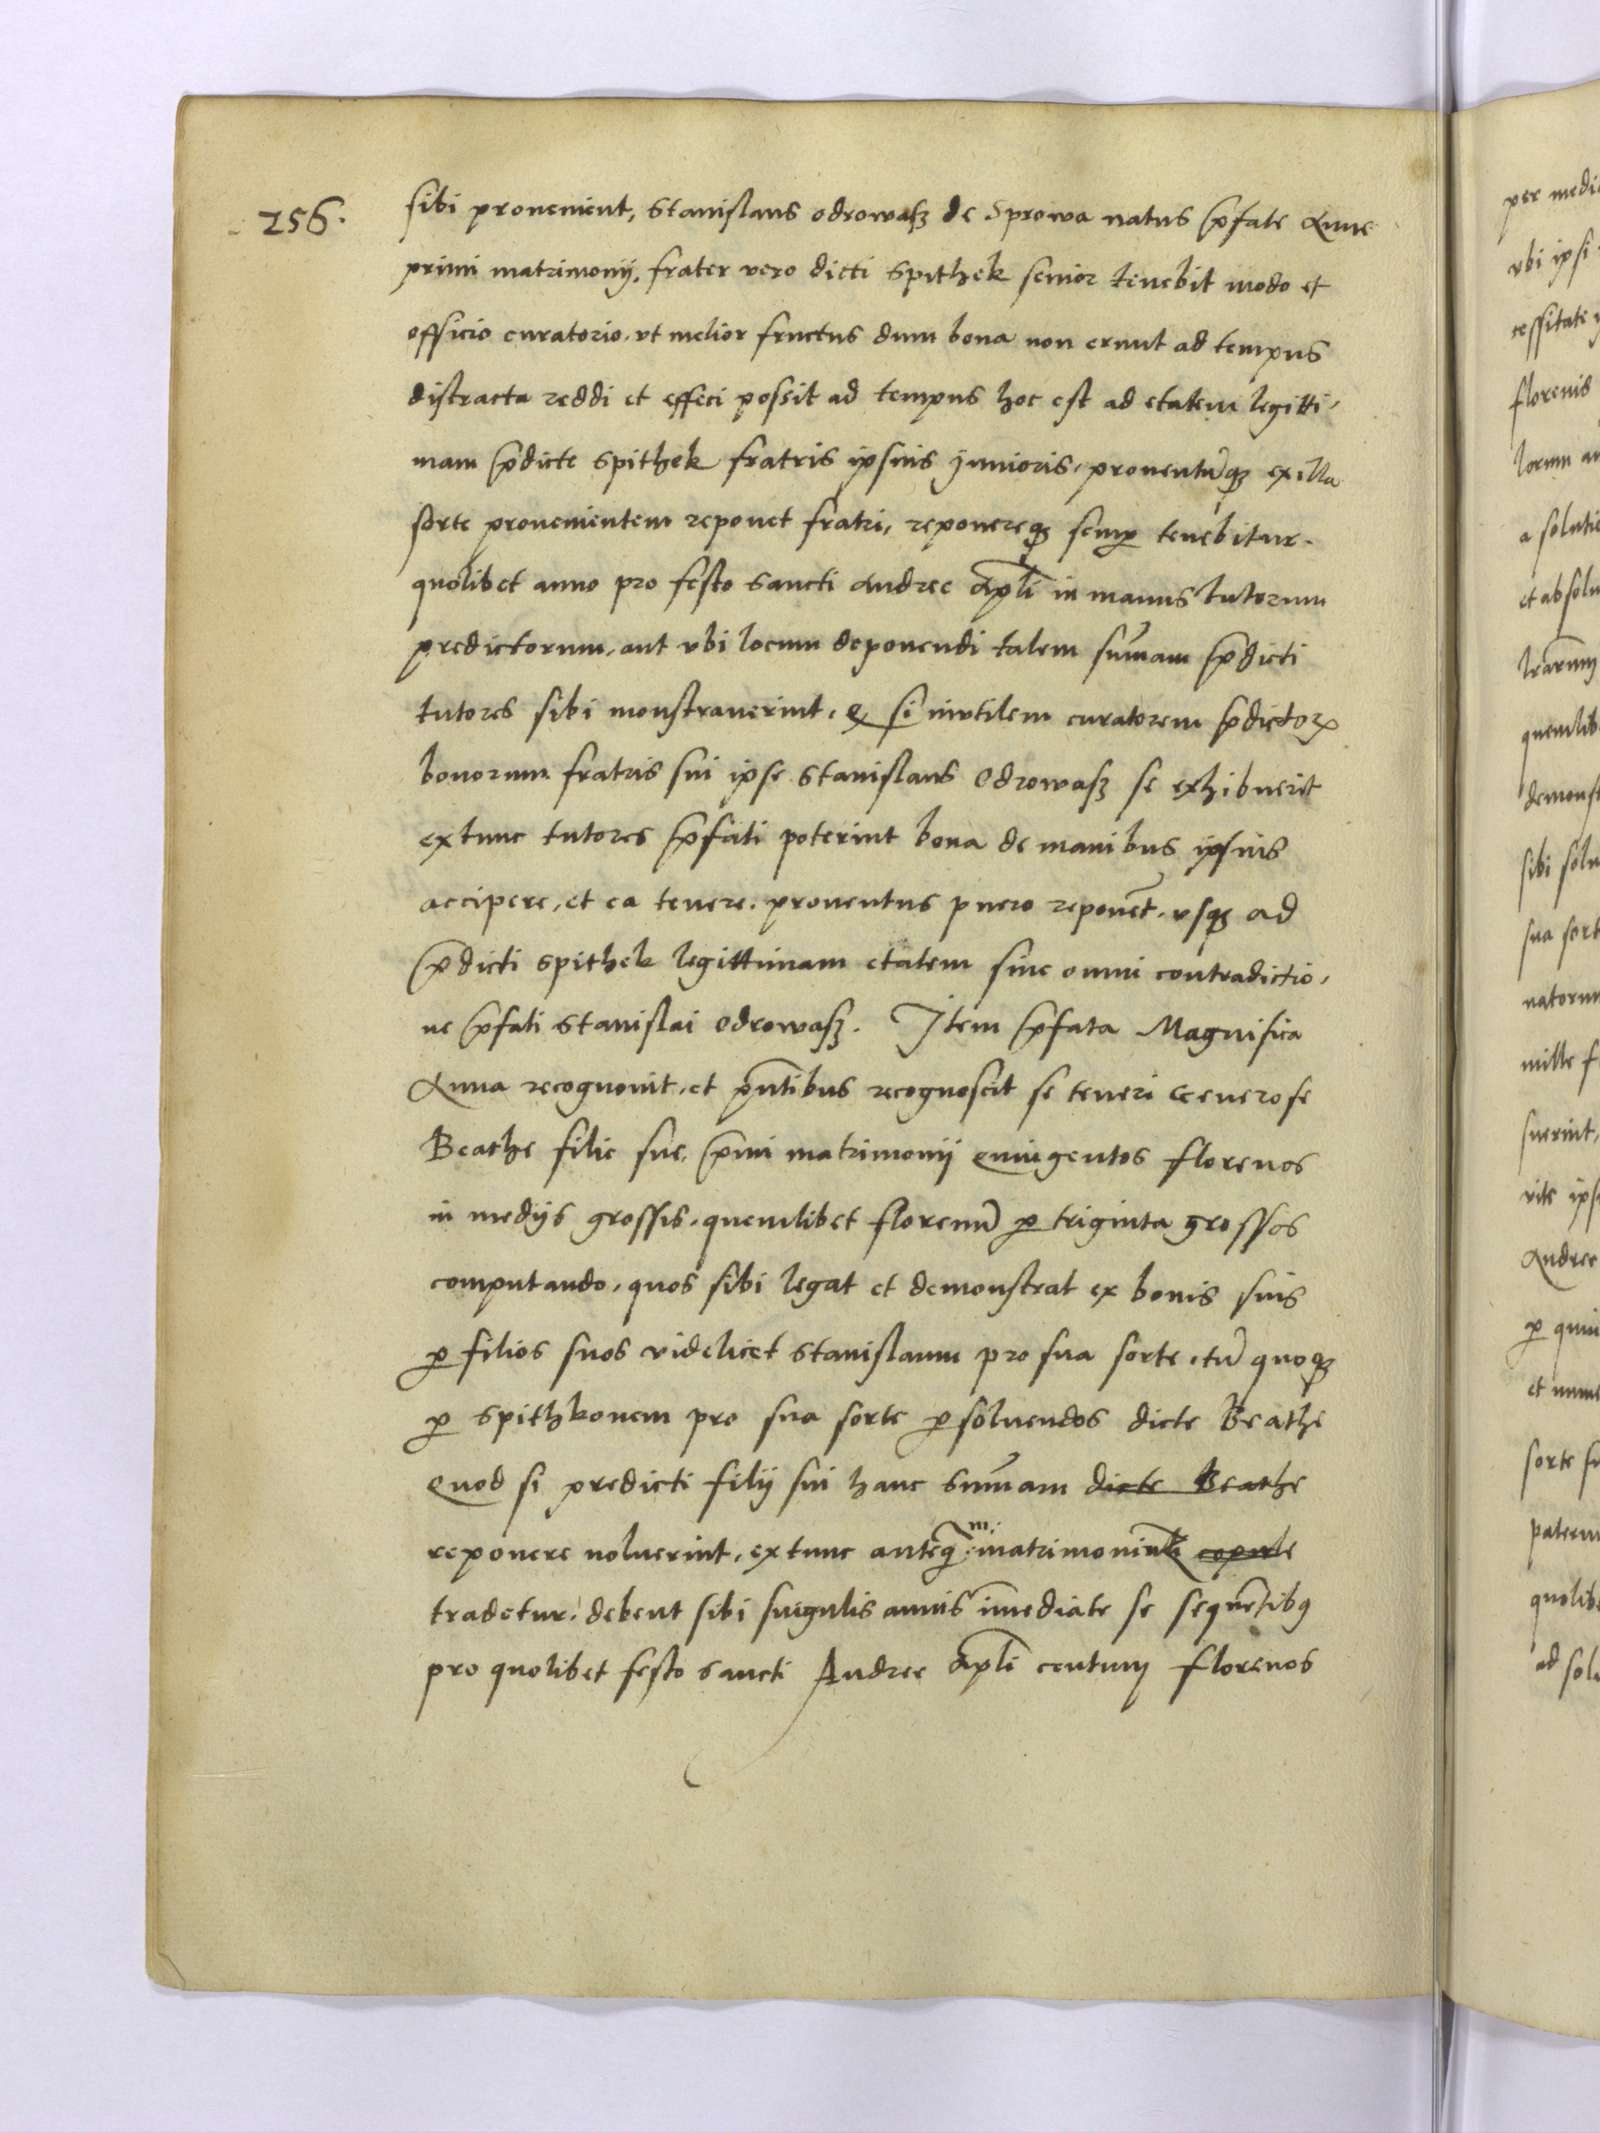 256.
sibi provenient, Stanislaus Odrowasz de Sprowa natus p̄fate Anne
primi matrimonij, frater vero dicti Spithek senior tenebit modo et
officio curatorio, vt melior fructus dum bona non erunt ad tempus
distracta reddi et effeci possit ad tempus hoc est ad etatem legitti,
mam p̄dicte Spithek fratris ipsius junioris, proventūqꝫ ex illa
sorte provenientem reponet fratri, reponereqꝫ semꝑ tenebitur.
quolibet anno pro festo Sancti Andree Apłi in manus tutorum
predictorum, aut vbi locum deponendi talem sum̄am p̄dicti
tutores sibi monstraverint, Et si invtilem curatorem p̄dictoꝝ
bonorum fratris sui ipse Stanislaus Odrowasz se exhibuerit
extunc tutores p̄fati poterint bona de manibus ipsius
accipere, et ea tenere, proventus puero reponēt, vsqꝫ ad
p̄dicti Spithek legittimam etatem sine omni contradictio,
ne p̄fati Stanislai Odrowasz. Item p̄fata Magnifica
Anna recognovit, et p̄ntibus recognoscit se teneri Generose
Beathe filie sue, p̄mi matrimonij quingentos florenos
in medijs grossis, quemlibet florenū ꝑ triginta grossos
computando, quos sibi legat et demonstrat ex bonis suis
ꝑ filios suos videlicet Stanislaum pro sua sorte, tū quoqꝫ
ꝑ Spithkonem pro sua sorte ꝑsolvendos dicte Beathe
Quod si predicti filij sui hanc Sum̄am dicte Beathe
reponere noluerint, extunc anteq̄ m̄ matrimoniali copule
tradetur, debent sibi singulis annis im̄ediate se sequētibꝯ
pro quolibet festo Sancti Andree Apłi centum florenos
per medi
vbi ipsi
cessitate
florenis
lorum
a soluti
et absolu
quemlib
demonst
sibi solu
sua sort
natorum
mille f
suerint,
vite ips
Andree
ꝑ quin
sorte su
patern
quolib
ad solu